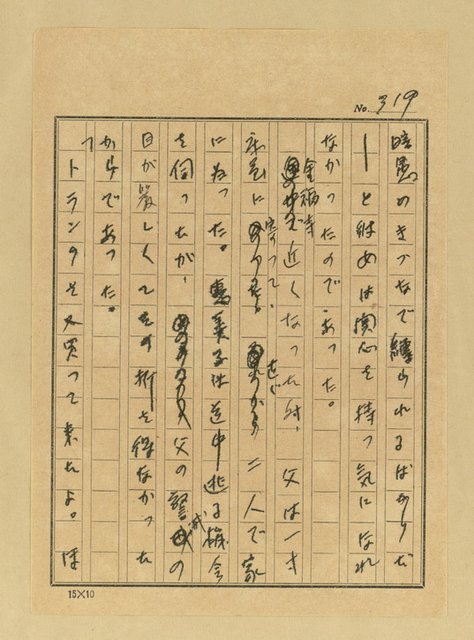 No. 319
のきづなで縛られるばかりだ
ーと始めは関心を持つ気になれ
なかったのであった。
金福寺近くなった時、父は一寸
に寄って、直ぐ二人で家
になった。美子は途中逃る機会
を伺ったが、父の警戒の
目が厳しくてその折を得なかった
からであった。
「トランクを又買って来たよ。ほ
15×10